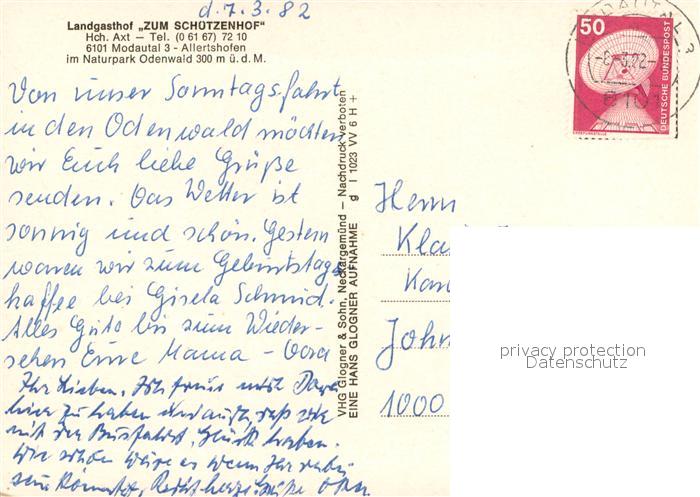 d. 7. 3. 82
Landgasthof „ZUM SCHÜTZENHOF"
Hch. Axt — Tel. (0 61 67) 72 10
6101 Modautal 3 - Allertshofen
im Naturpark Odenwald 300 m ü. d. M.
Von unser Sonntagsfahrt
in den Odenwald möchten
wir Euch liebe Grüße
senden. Das Wetter ist
sonnig und schön. Gestern
waren wir zum Geburtstags
kaffee bei Gisela Schmid.
Alles Gute bis zum Wieder-
sehen Eure Mama –
Ihr Lieben, Ich freue mich
hier zu haben und auch, daß wir
mit der Busfahrt, Glück haben.
Wie schön wäre es wenn Ihr
Grüße
VHG Glogner & Sohn, Neckargemünd — Nachdruck verboten
EINE HANS GLOGNER AUFNAHME g I 1023 VV 6 H +
50
DEUTSCHE BUNDESPOST
Herrn
Kla
Kan
John
1000
privacy protection
Datenschutz